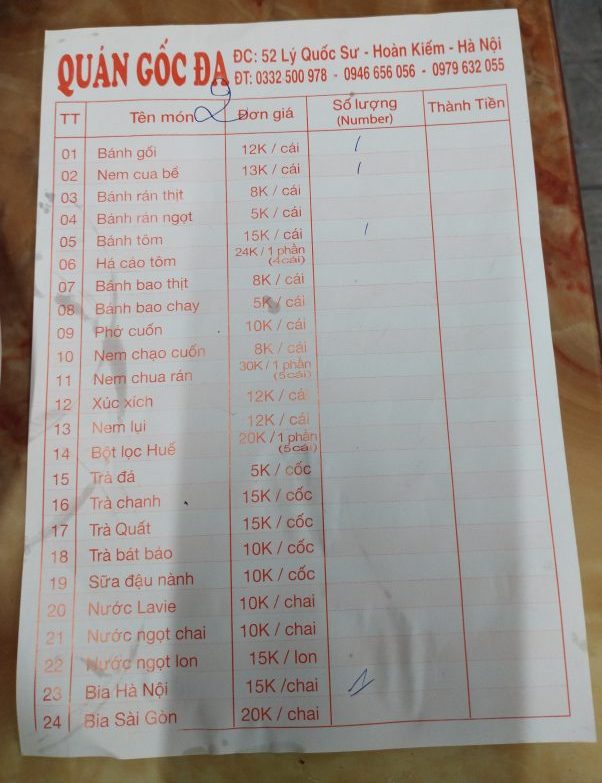 QUÁN GỐC ĐA
ĐC: 52 Lý Quốc Sư - Hoàn Kiếm - Hà Nội
ĐT: 0332 500 978 - 0946 656 056 - 0979 632 055
TT Tên món Đơn giá Số lượng (Number) Thành Tiền
01 Bánh gối 12K / cái 1
02 Nem cua bể 13K / cái 1
03 Bánh rán thịt 8K / cái
04 Bánh rán ngọt 5K / cái
05 Bánh tôm 15K / cái 1
06 Há cảo tôm 24K / 1 phần (4cái)
07 Bánh bao thịt 8K / cái
08 Bánh bao chay 5K / cái
09 Phở cuốn 10K / cái
10 Nem chạo cuốn 8K / cái
11 Nem chua rán 30K / 1 phần (5cái)
12 Xúc xích 12K / cái
13 Nem lụi 12K / cái
14 Bột lọc Huế 20K / 1 phần (5cái)
15 Trà đá 5K / cốc
16 Trà chanh 15K / cốc
17 Trà Quất 15K / cốc
18 Trà bát bảo 10K / cốc
19 Sữa đậu nành 10K / cốc
20 Nước Lavie 10K / chai
21 Nước ngọt chai 10K / chai
22 Nước ngọt lon 15K / lon
23 Bia Hà Nội 15K /chai 1
24 Bia Sài Gòn 20K / chai